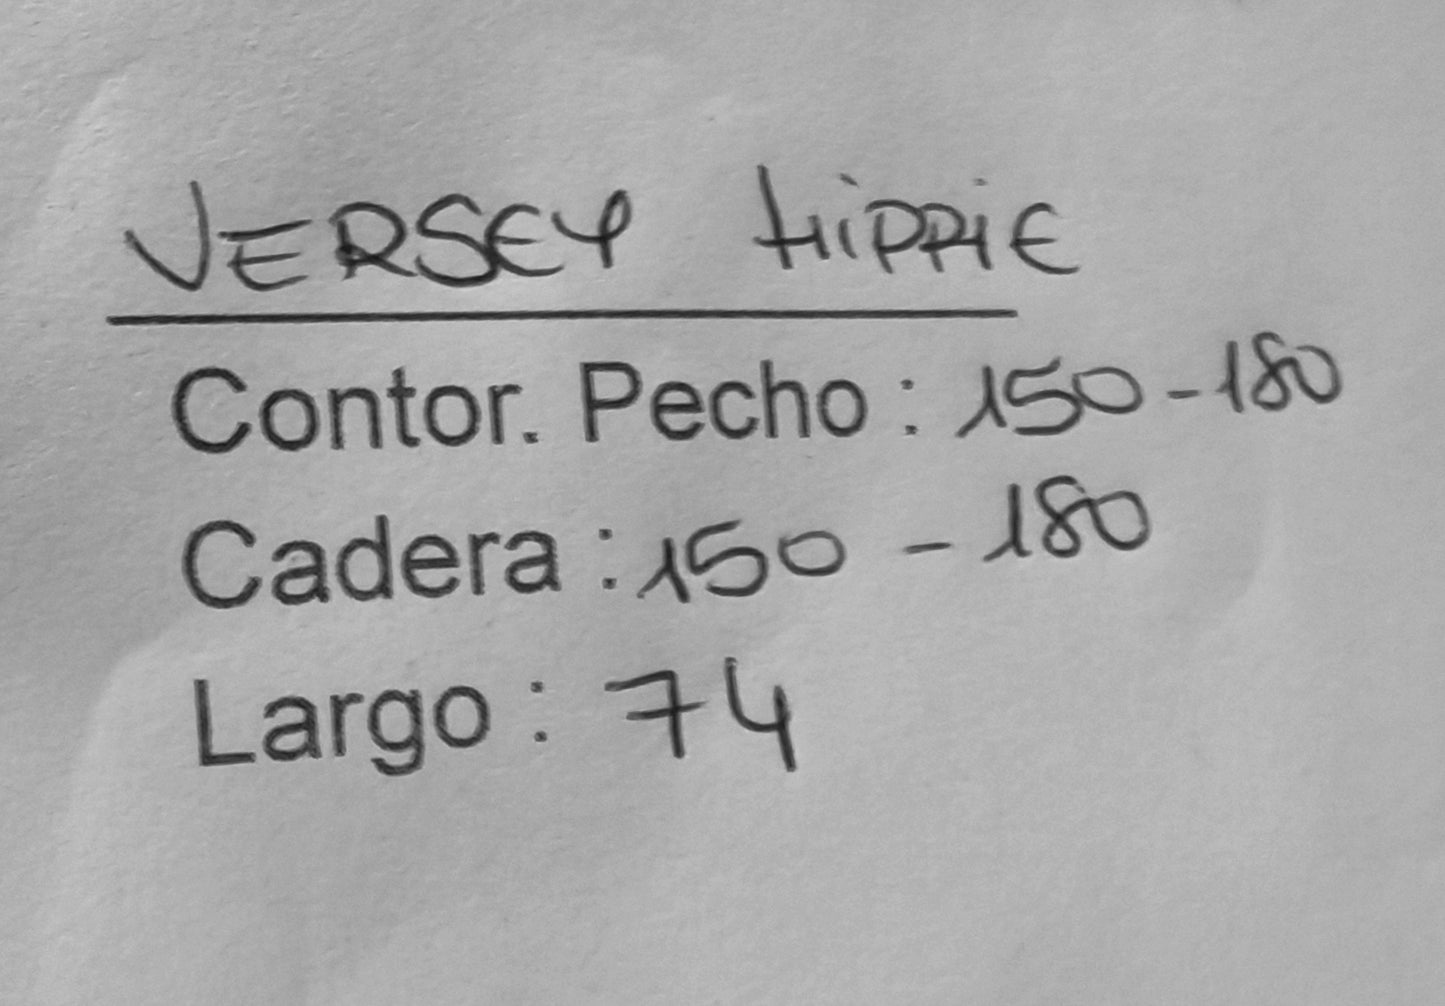 JERSEY HIPPIE
Contor. Pecho : 150-180
Cadera : 150 - 180
Largo : 74